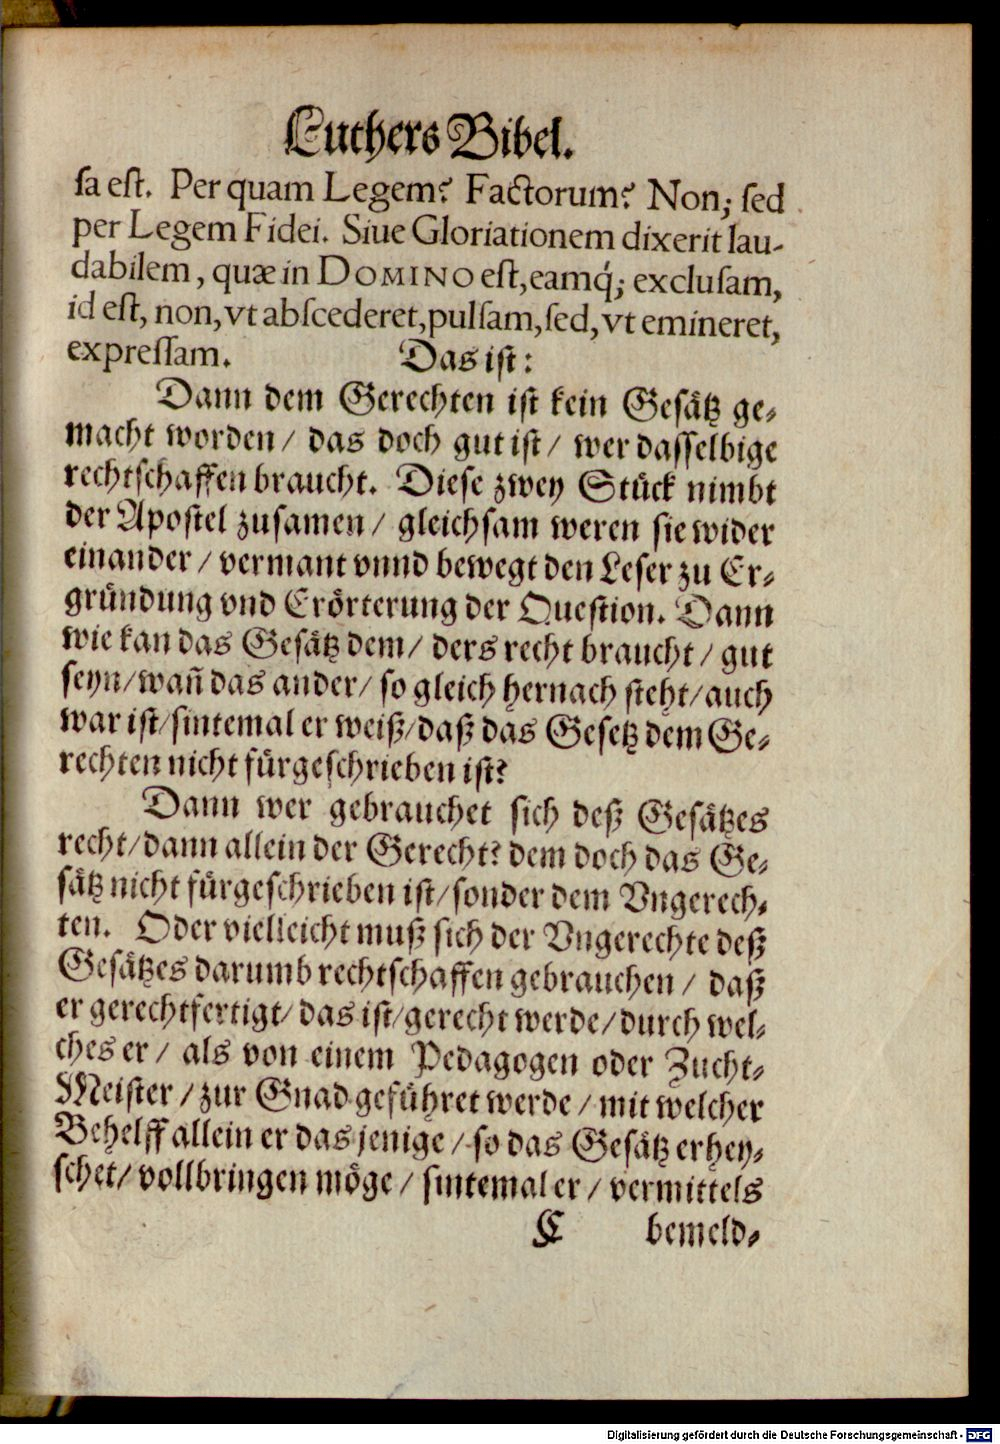 Luthers Bibel.
sa est. Per quam Legem? Factorum? Non; sed
per Legem Fidei. Siue Gloriationem dixerit lau-
dabilem, quæ in DOMINO est, eamq́; exclusam,
id est, non, vt abscederet, pulsam, sed, vt emineret,
expressam. Das ist:
Dann dem Gerechten ist kein Gesätz ge-
macht worden / das doch gut ist / wer dasselbige
rechtschaffen braucht. Diese zwey Stück nimbt
der Apostel zusamen / gleichsam weren sie wider
einander / vermant vnnd bewegt den Leser zu Er-
gründung vnd Erörterung der Question. Dann
wie kan das Gesätz dem / ders recht braucht / gut
seyn / wañ das ander / so gleich hernach steht / auch
war ist / sintemal er weiß / daß das Gesetz dem Ge-
rechten nicht fürgeschrieben ist?
Dann wer gebrauchet sich deß Gesätzes
recht / dann allein der Gerecht? dem doch das Ge-
sätz nicht fürgeschrieben ist / sonder dem Vngerech-
ten. Oder vielleicht muß sich der Vngerechte deß
Gesätzes darumb rechtschaffen gebrauchen / daß
er gerechtfertigt / das ist / gerecht werde / durch wel-
ches er / als von einem Pedagogen oder Zucht-
Meister / zur Gnad geführet werde / mit welcher
Behelff allein er das jenige / so das Gesätz erhey-
schet / vollbringen möge / sintemal er / vermittels
C bemeld-
Digitalisierung gefördert durch die Deutsche Forschungsgemeinschaft - DFG